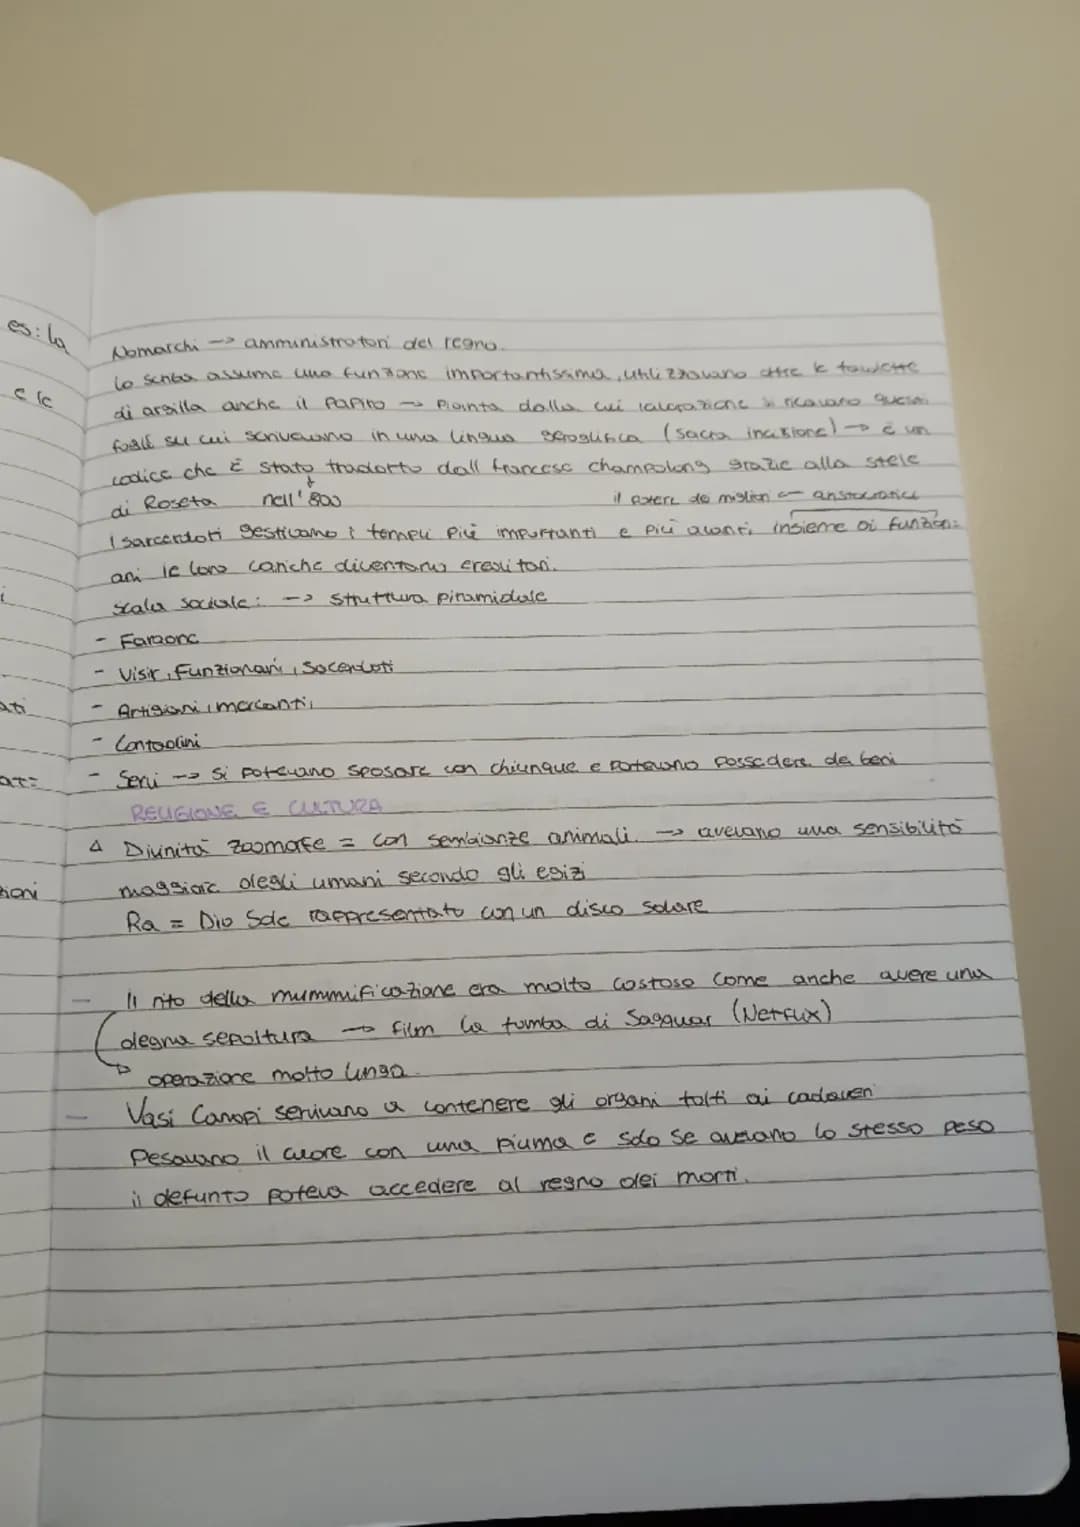 es: la
e le
Nomarchi -> amministratori del regno.
lo scriba assume una funzione importantissima, utilizzavano oltre le tavolette
di argilla anche il papiro -> Pianta dalla cui lavorazione si ricavano questi
fogli su cui scrivevano in una lingua geroglifica (sacra incisione) -> è un
codice che è stato tradotto dall francese champolong grazie alla stele
di Roseta nell'800 il potere dei migliori <- aristocratici
I sarcerdoti gestivano i templi più importanti e più avanti, insieme ai funzion=
ari le loro cariche diventano ereditari.
scala sociale: -> struttura piramidale
- Faraone
- Visir, Funzionari, Sacerdoti
- Artigiani, mercanti,
- Contadini
- Servi -> si potevano sposare con chiunque e potevano possedere dei beni
RELIGIONE E CULTURA
Divinità zoomorfe = con sembianze animali. -> avevano una sensibilità
maggiore degli umani secondo gli egizi
Ra = Dio Sole rappresentato con un disco solare
- Il rito della mummificazione era molto costoso come anche avere una
degna sepoltura -> film la tomba di Saqquar (Netflix)
operazione molto lunga.
- Vasi Canopi servivano a contenere gli organi tolti ai cadaveri
Pesavano il cuore con una piuma e solo se avevano lo stesso peso
il defunto poteva accedere al regno dei morti.